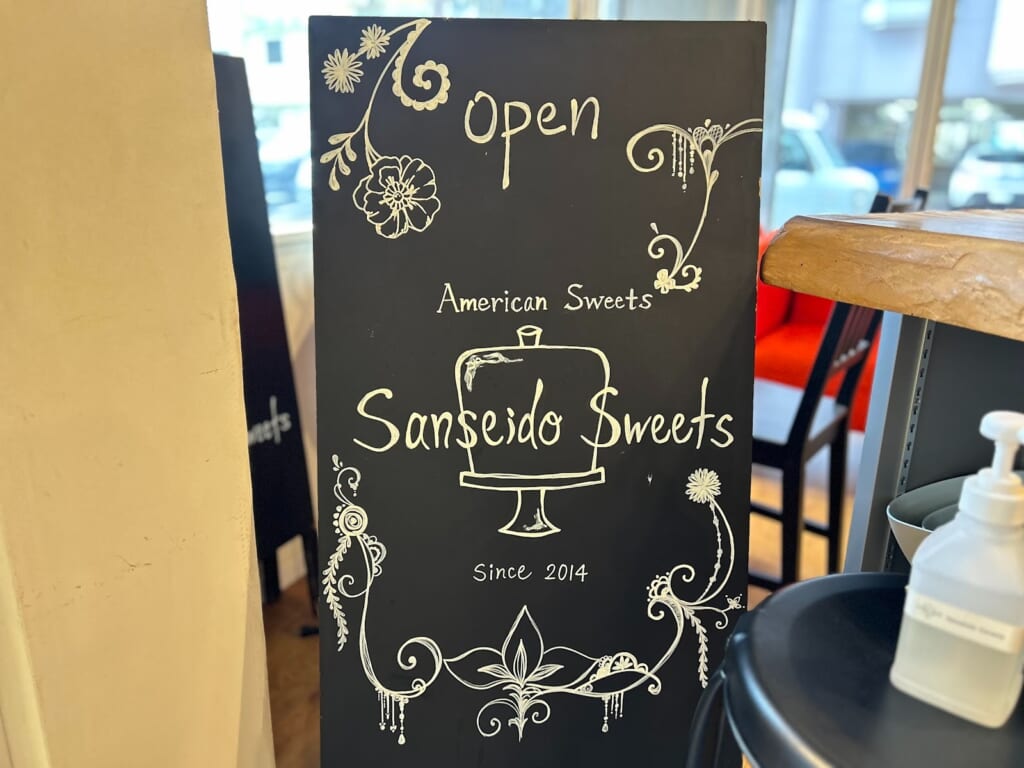 Open
American Sweets
Sanseido Sweets
Since 2014